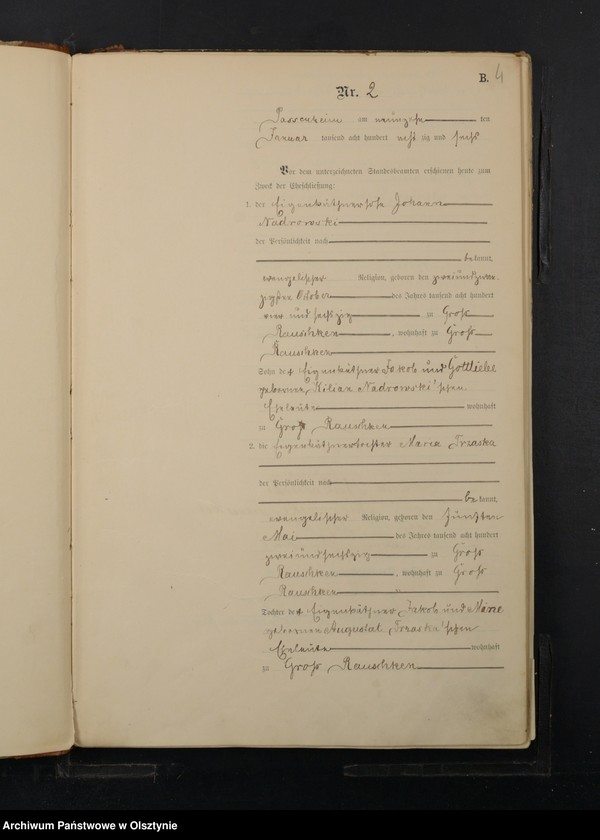 B. 4
Nr. 2
Passenheim am neunzehn ten
Januar tausend acht hundert acht zig und sechs
Vor dem unterzeichneten Standesbeamten erschienen heute zum
Zweck der Eheschließung:
1. der Eigenkäthnersohn Johann
Nadrowski
der Persönlichkeit nach
be kannt,
evangelischer Religion, geboren den zweiundzwan-
zigsten Oktober des Jahres tausend acht hundert
vier und sechszig zu Groß
Rauschken, wohnhaft zu Groß
Rauschken
Sohn der Eigenkäthner Jakob und Gottliebe
geborenen Kilian Nadrowski'schen
Eheleute wohnhaft
zu Groß Rauschken
2. die Eigenkäthnertochter Maria Trzaska
der Persönlichkeit nach
be kannt,
evangelischer Religion, geboren den fünften
Mai des Jahres tausend acht hundert
zweiundsechszig zu Groß
Rauschken, wohnhaft zu Groß
Rauschken
Tochter der Eigenkäthner Jakob und Mine
geborenen Trzaska'schen
Eheleute wohnhaft
zu Groß Rauschken
Archiwum Państwowe w Olsztynie